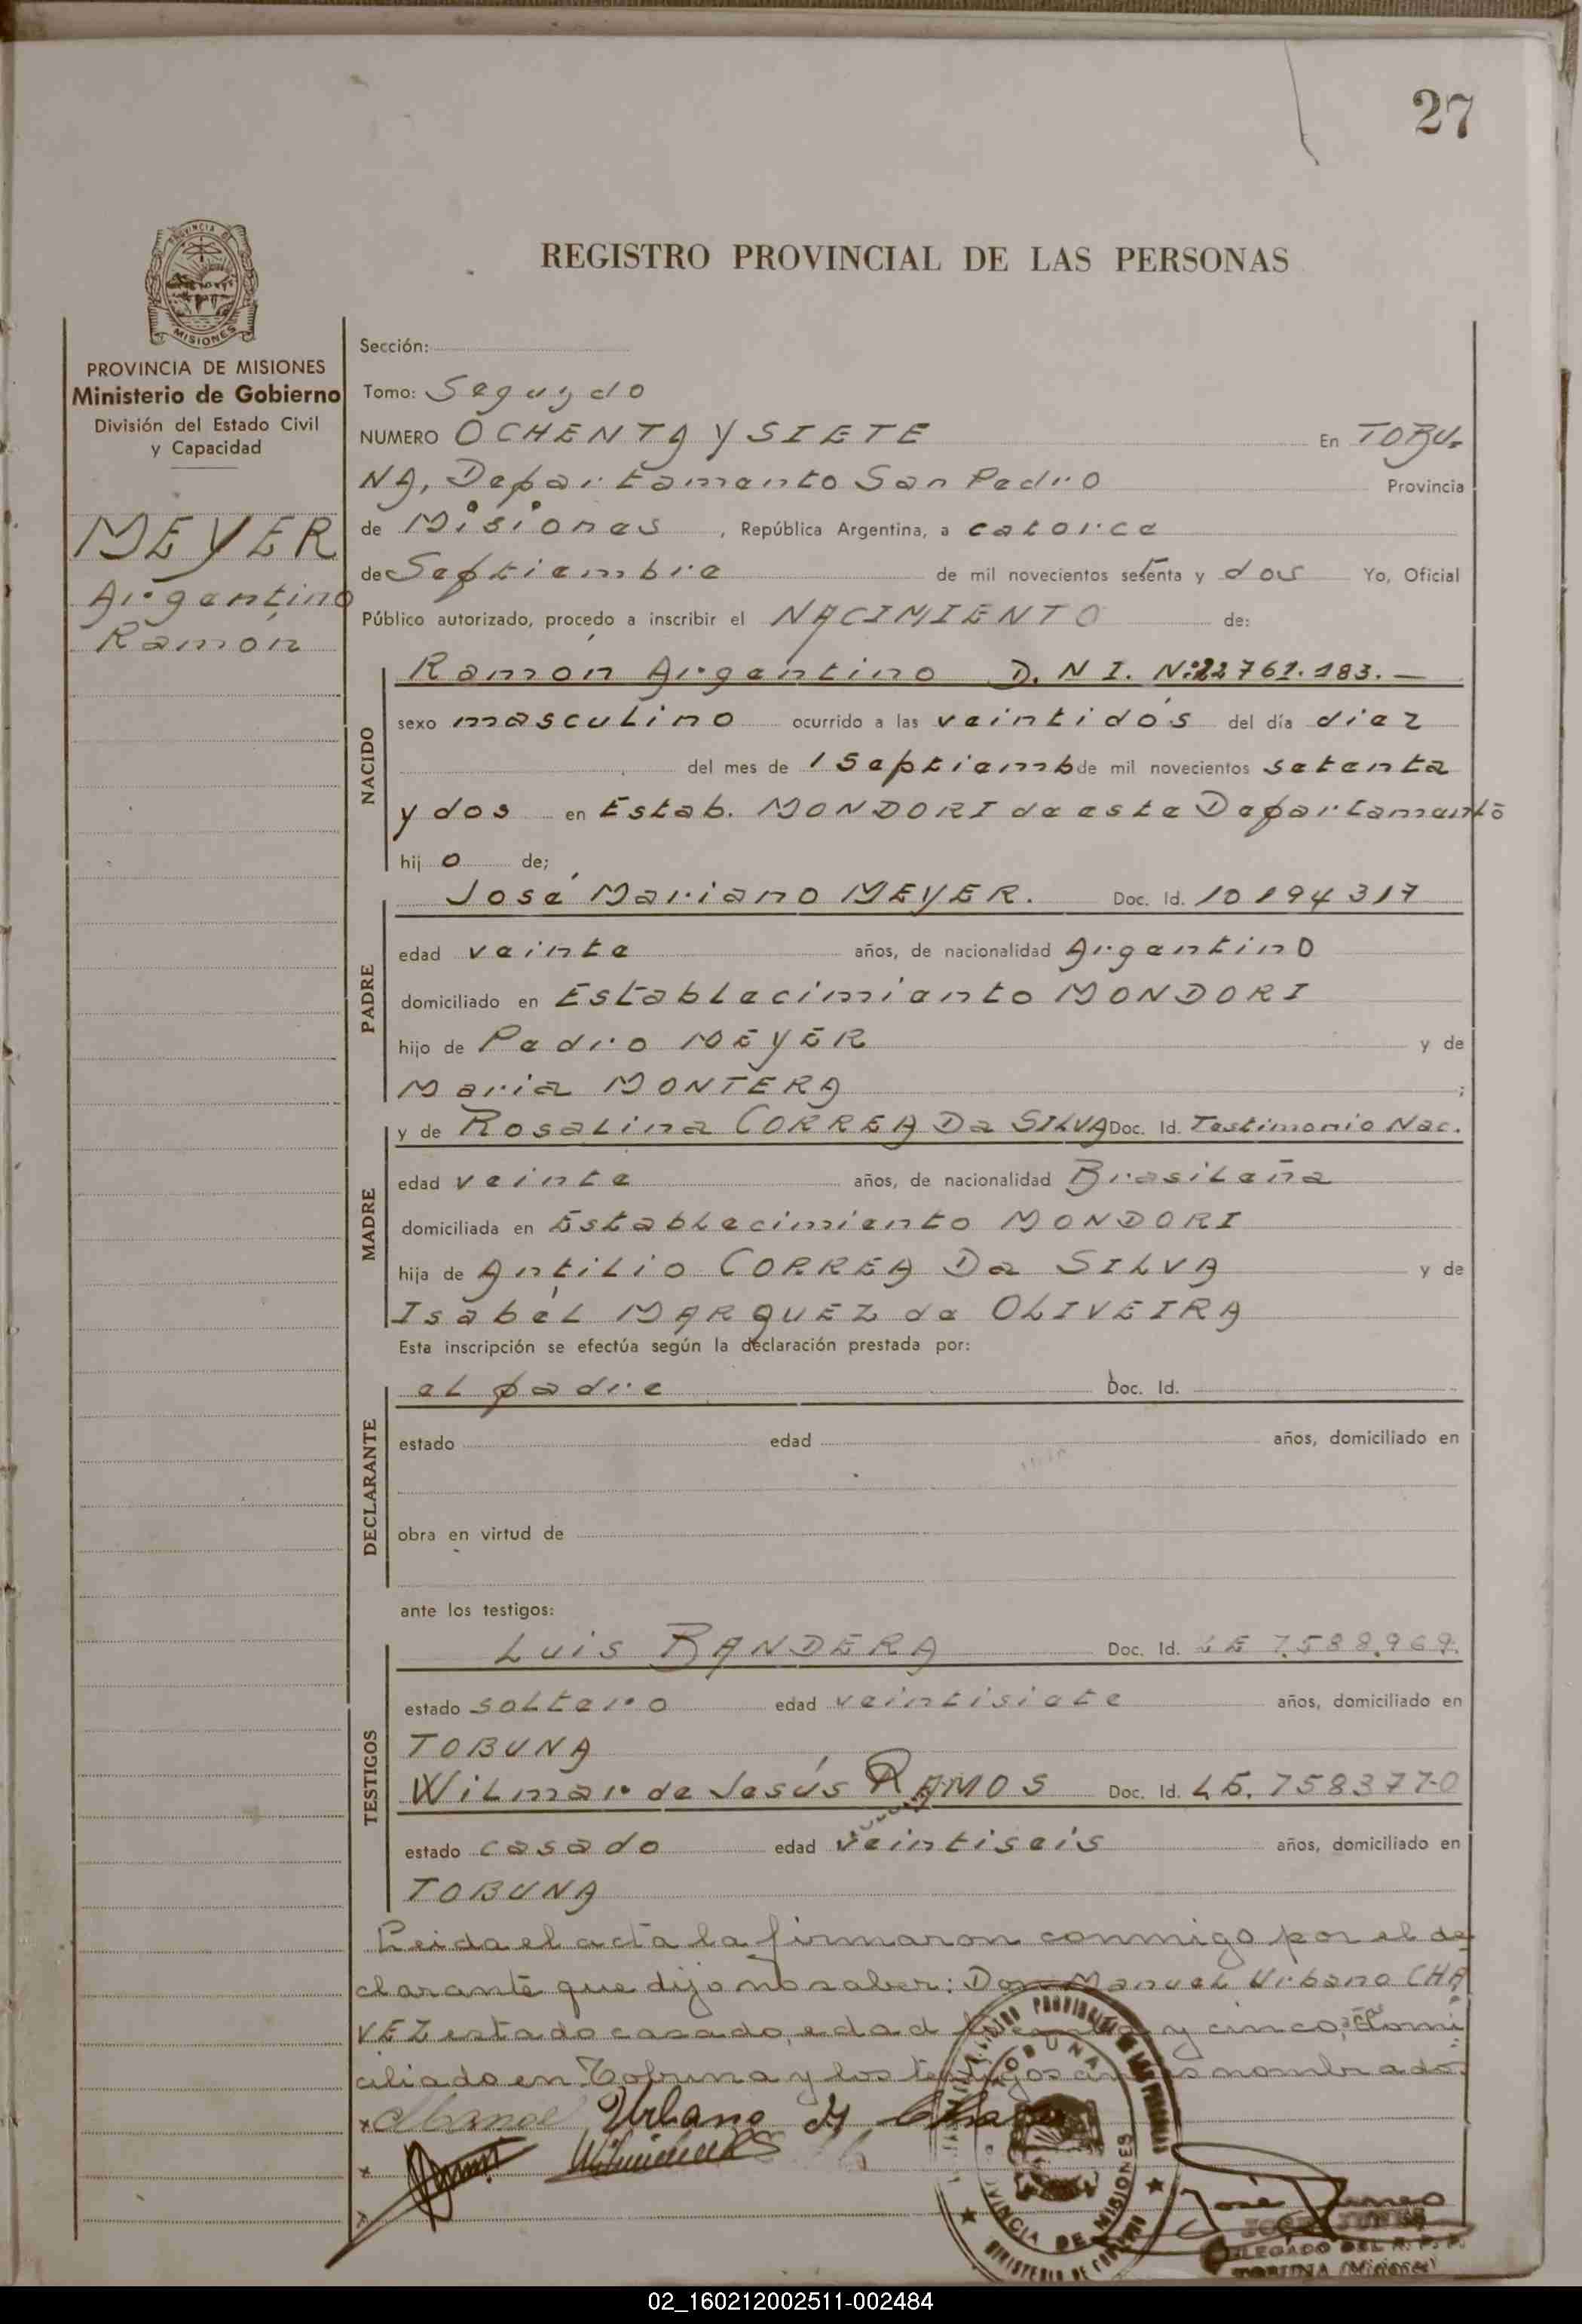 27
REGISTRO PROVINCIAL DE LAS PERSONAS
PROVINCIA DE
MISIONES
PROVINCIA DE MISIONES
Ministerio de Gobierno
División del Estado Civil
y Capacidad
MEYER
Argentino
Ramón
Sección:
Tomo: Segundo
NUMERO OCHENTA Y SIETE En TOBU-
NA, Departamento San Pedro Provincia
de Misiones , República Argentina, a catorce
de Septiembre de mil novecientos setenta y dos Yo, Oficial
Público autorizado, procedo a inscribir el NACIMIENTO de:
NACIDO
Ramón Argentino D. N I. Nº 22 761.183.—
sexo masculino ocurrido a las veintidós del día diez
del mes de Septiemb de mil novecientos setenta
y dos en Estab. MONDORI de este Departamento
hij o de;
PADRE
José Mariano MEYER. Doc. Id. 10 194 317
edad veinte años, de nacionalidad Argentino
domiciliado en Establecimiento MONDORI
hijo de Pedro MEYER y de
Maria MONTERA ;
MADRE
y de Rosalina CORREA Da SILVA Doc. Id. Testimonio Nac.
edad veinte años, de nacionalidad Brasileña
domiciliada en Establecimiento MONDORI
hija de Antilio CORREA Da SILVA y de
Isabél MARQUEZ de OLIVEIRA
Esta inscripción se efectúa según la declaración prestada por:
DECLARANTE
el padre Doc. Id.
estado edad años, domiciliado en
obra en virtud de
ante los testigos:
TESTIGOS
Luis BANDERA Doc. Id. LE 7.588.969.
estado soltero edad veintisiete años, domiciliado en
TOBUNA
Wilmar de Jesús RAMOS Doc. Id. L E. 7583770
estado casado edad veintiseis años, domiciliado en
TOBUNA
Leida el acta la firmaron conmigo por el de
clarante que dijo no saber: Don Manuel Urbano CHA
VEZ estado casado, edad y cinco, domi
ciliado en Tobuna y los testigos nombrados.
Manoel Urbano
TOBUNA
PROVINCIA DE MISIONES
MINISTERIO DE GOBIERNO
JOSE
DELEGADO DEL R. P. P.
TOBUNA (Misiones)
02_160212002511-002484